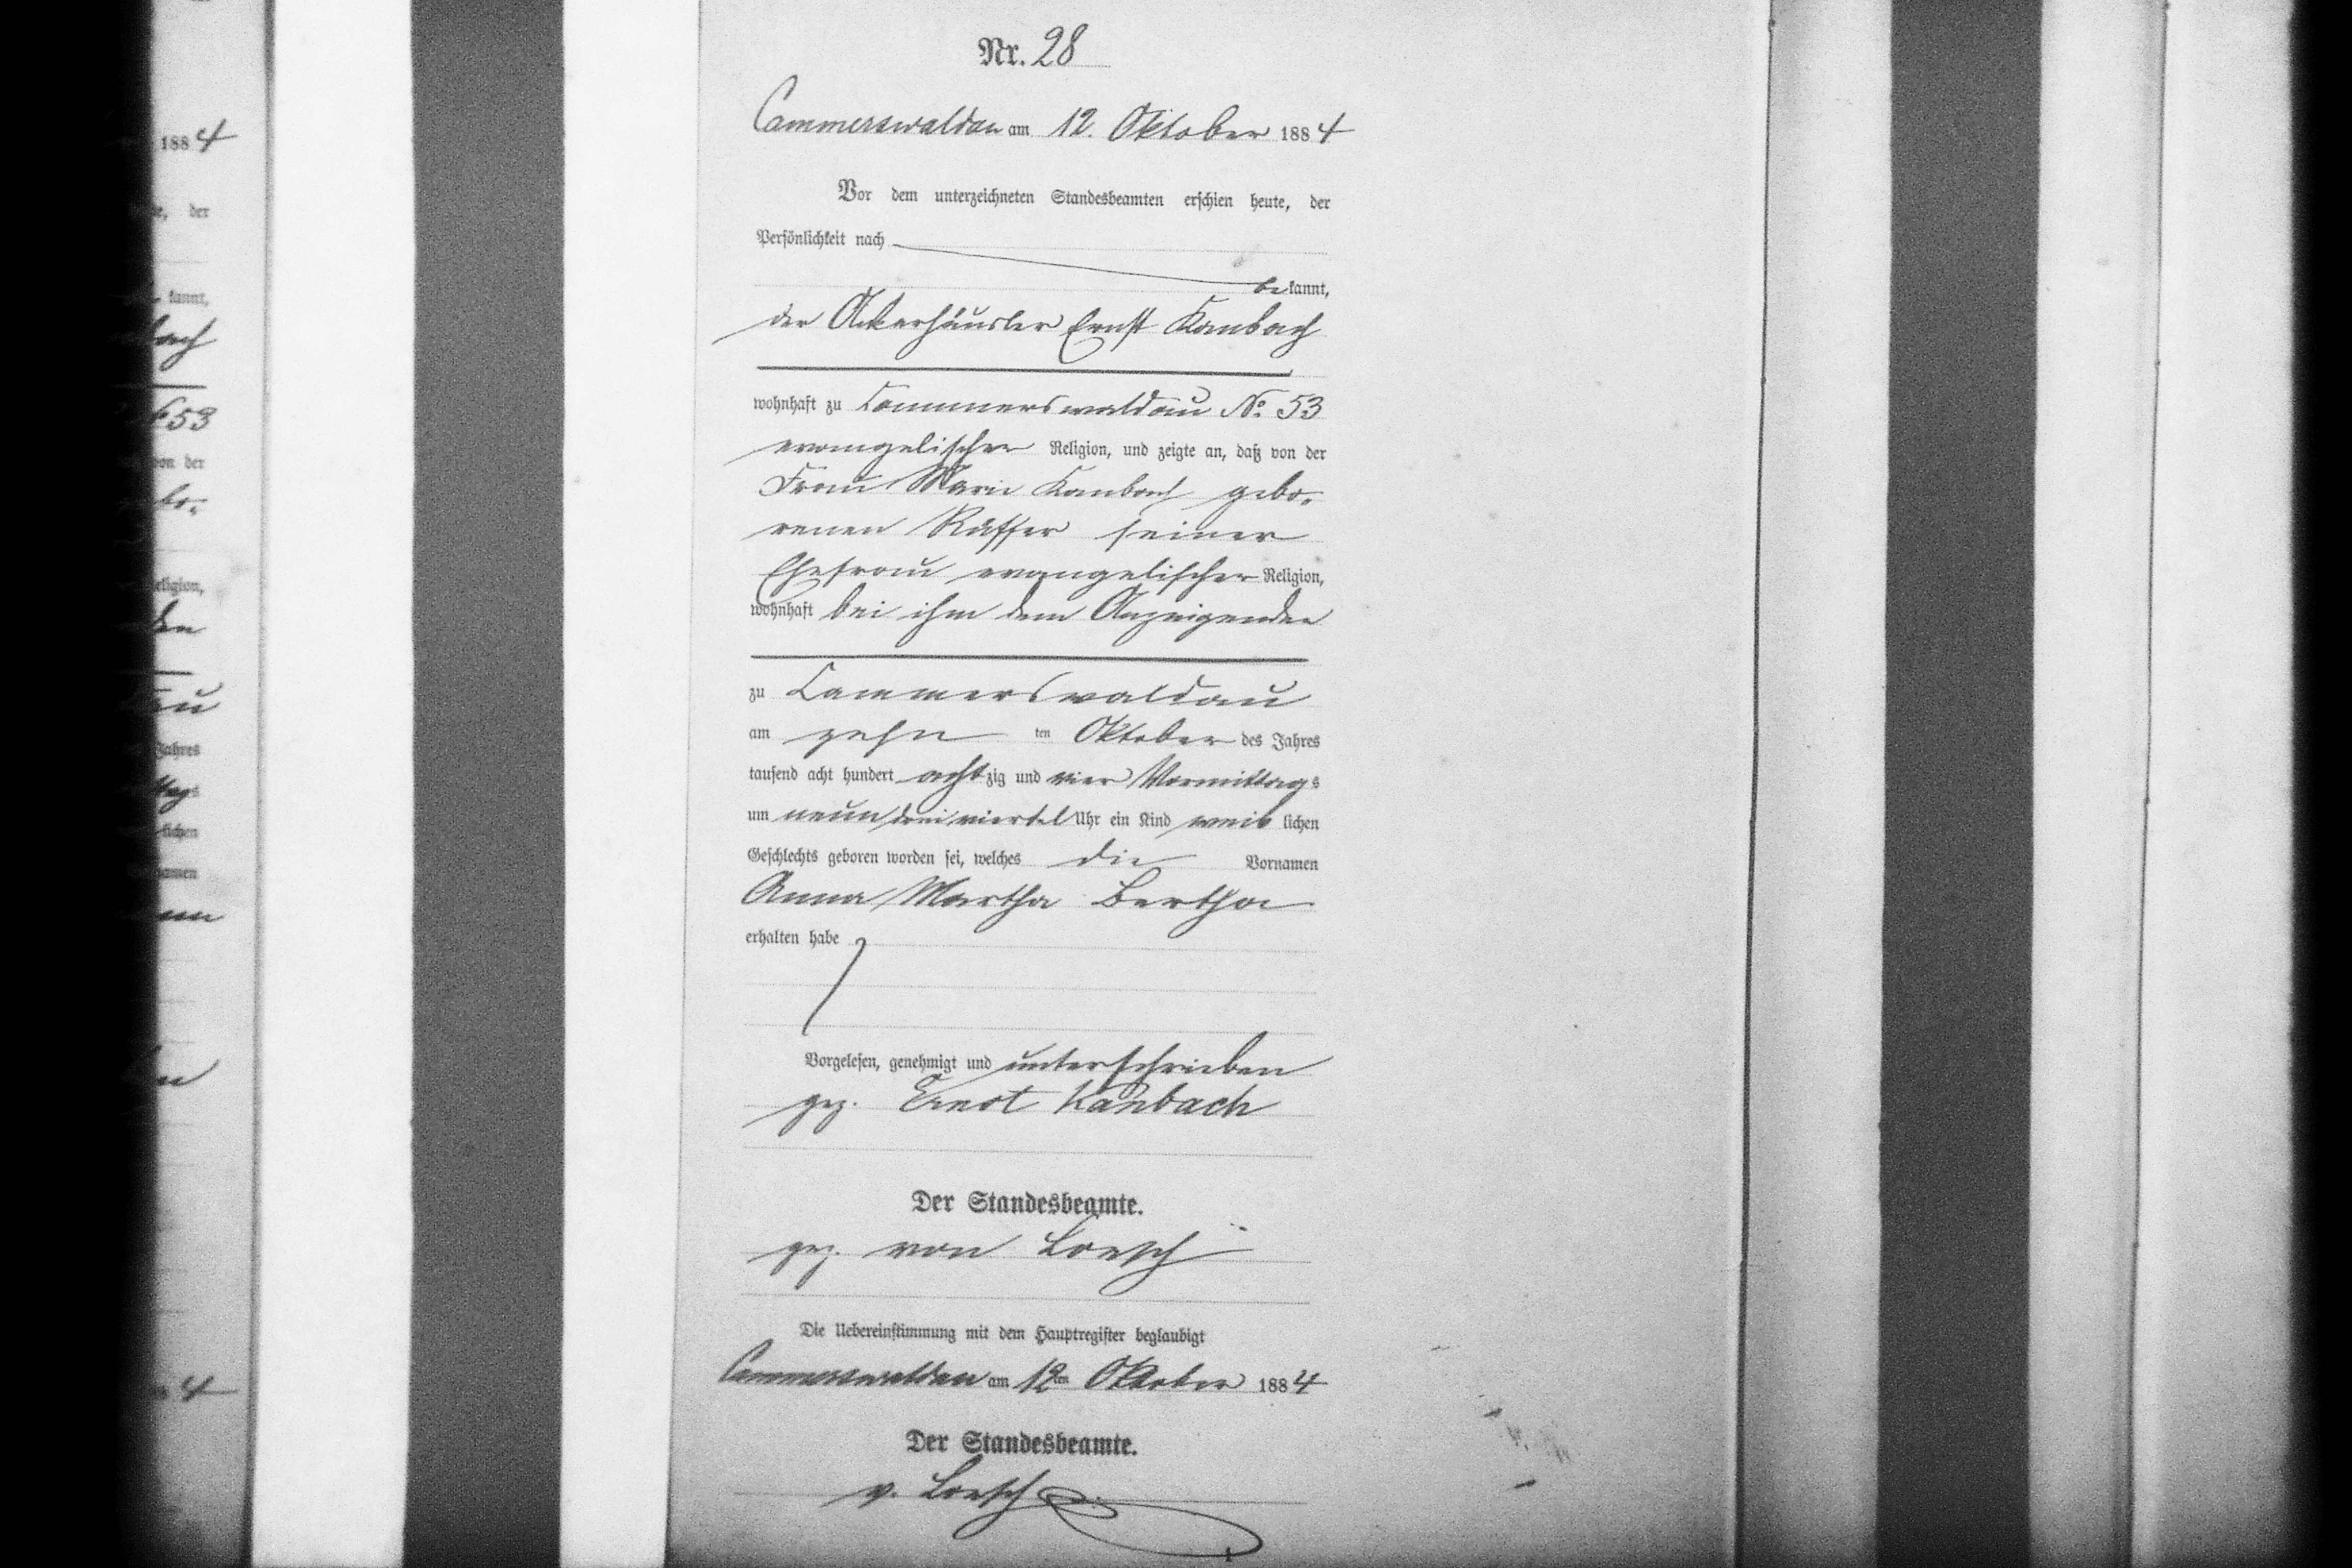 188 4
e, der
kannt,
bach
№ 53
von der
bo-
eligion,
den
au
Jahres
tags
lichen
namen
4
Nr. 28
Cammerswaldau am 12. Oktober 1884
Vor dem unterzeichneten Standesbeamten erschien heute, der
Persönlichkeit nach
bekannt,
der Ackerhäusler Ernst Kanbach
wohnhaft zu Cammerswaldau No. 53
evangelischer Religion, und zeigte an, daß von der
Frau Marie Kanbach gebo-
renen Rüffer seiner
Ehefrau evangelischer Religion,
wohnhaft bei ihm dem Anzeigenden
zu Cammerswaldau
am zehn ten Oktober des Jahres
tausend acht hundert achtzig und vier Vormittags
um neun dreiviertel Uhr ein Kind weiblichen
Geschlechts geboren worden sei, welches die Vornamen
Anna Martha Bertha
erhalten habe
Vorgelesen, genehmigt und unterschrieben
gez. Ernst Kanbach
Der Standesbeamte.
gez. von Loesch
Die Uebereinstimmung mit dem Hauptregister beglaubigt
Cammerswaldau am 12ten Oktober 1884
Der Standesbeamte.
v. Loesch